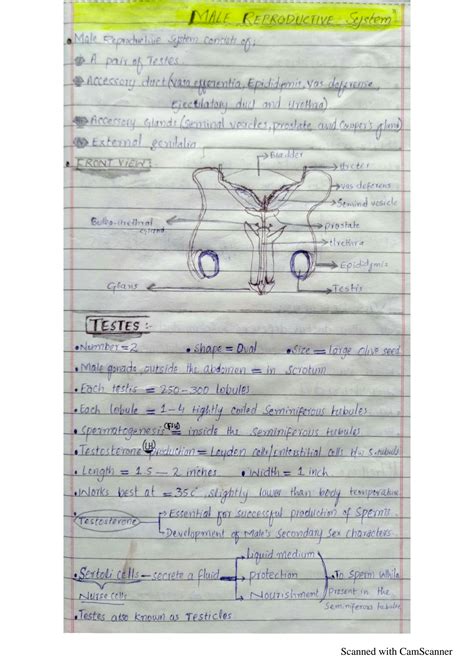 MALE REPRODUCTIVE System
Male Reproductive System consists of;
A pair of Testes.
Accessory duct (vasa efferentia, Epididymis, vas deferens,
Ejaculatory duct and Urethra)
Accessory Glands (seminal vesicles, prostate and Cowper's gland)
External genitalia
FRONT VIEW:
Bladder
Ureter
vas deferens
Seminal vesicle
Bulbo-urethral gland
prostate
Urethra
Epididymis
Glans
Testis
TESTES :-
Number = 2
Shape = Oval
Size = large Olive seed
Male gonads outside the abdomen = in Scrotum
Each testis = 250-300 lobules
Each lobule = 1-4 tightly coiled Seminiferous tubules
Spermatogenesis (FSH) = inside the Seminiferous tubules
Testosterone (LH) Production = Leyden cells/interstitial cells b/w S.tubules
Length = 1.5 - 2 inches
Width = 1 inch
Works best at = 35c slightly lower than body temperature
Testosterone
Essential for successful production of Sperms.
Development of Male's Secondary Sex characters.
liquid medium
Sertoli cells - secrete a fluid
protection
To Sperm while
Nurse cells
Nourishment
Present in the
Seminiferous tubules
Testes also known as Testicles.
Scanned with CamScanner